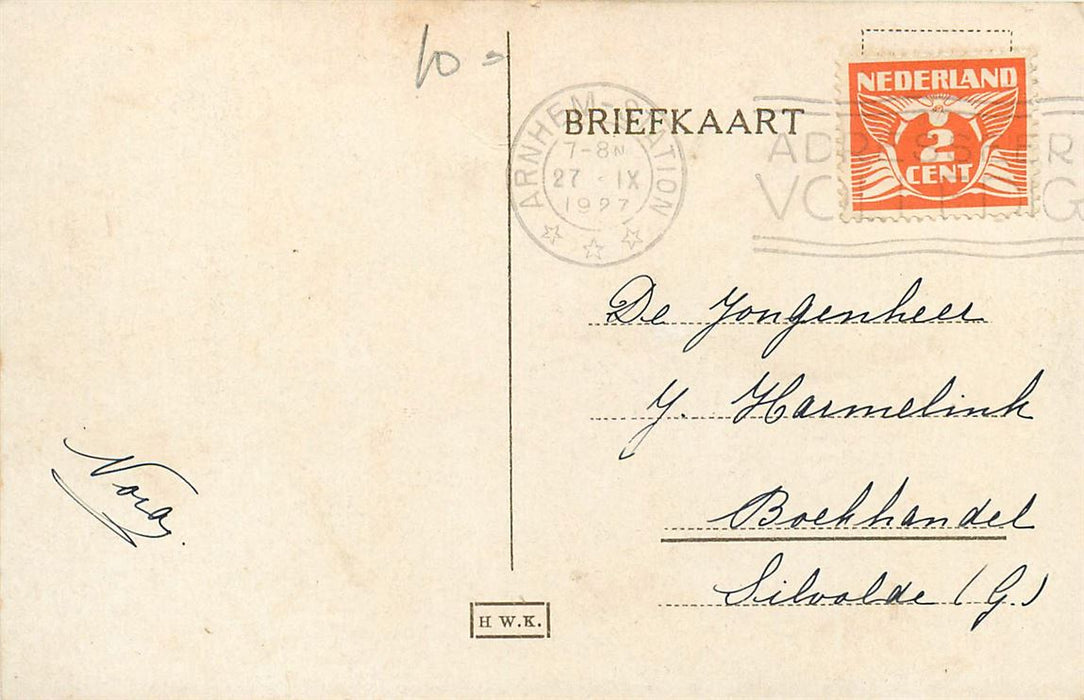 10 =
BRIEFKAART
ARNHEM-STATION
7-8N
27 IX
1927
NEDERLAND
2
CENT
De Jongenheer
J. Harmelink
Boekhandel
Silvolde (G.)
Nora.
H W.K.